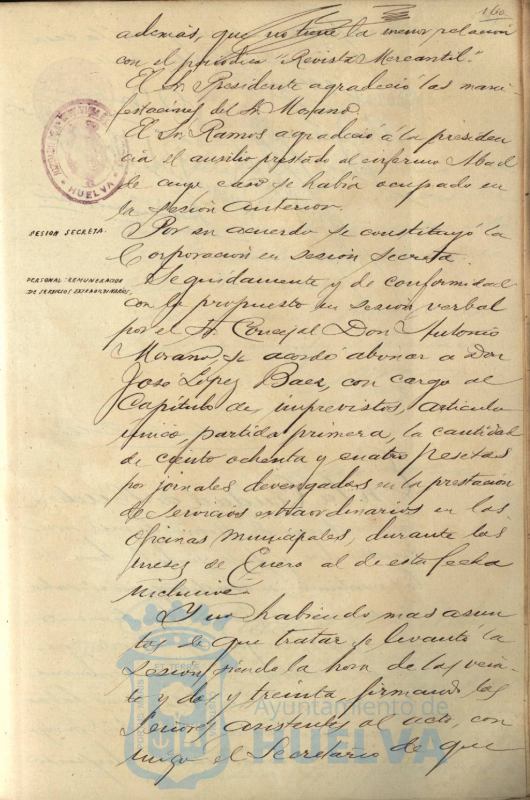 160
además, que no tiene la menor relación
con el periódico "Revista Mercantil".
El Sr. Presidente agradeció las mani-
festaciones del Sr. Morano.
El Sr. Ramos agradeció á la presiden-
cia el auxilio prestado al enfermo Abad
de cuyo caso se había ocupado en
la sesión anterior.
SESION SECRETA.
Por su acuerdo se constituyó la
Corporación en sesión secreta.
PERSONAL: REMUNERACION
DE SERVICIOS EXTRAORDINARIOS.
Seguidamente y de conformidad
con lo propuesto en sesión verbal
por el Sr. Concejal Don Antonio
Morano, se acordó abonar a Don
José López Baez, con cargo al
Capítulo de imprevistos, artículo
único, partida primera, la cantidad
de ciento ochenta y cuatro pesetas
por jornales devengados en la prestación
de servicios extraordinarios en las
oficinas municipales, durante los
meses de Enero al de esta fecha
inclusive.
Y no habiendo mas asun-
tos de que tratar, se levantó la
sesión, siendo la hora de las vein-
te y dos y treinta, firmando los
Señores asistentes al acto, con-
migo el Secretario de que
HUELVA
Ayuntamiento de
HUELVA